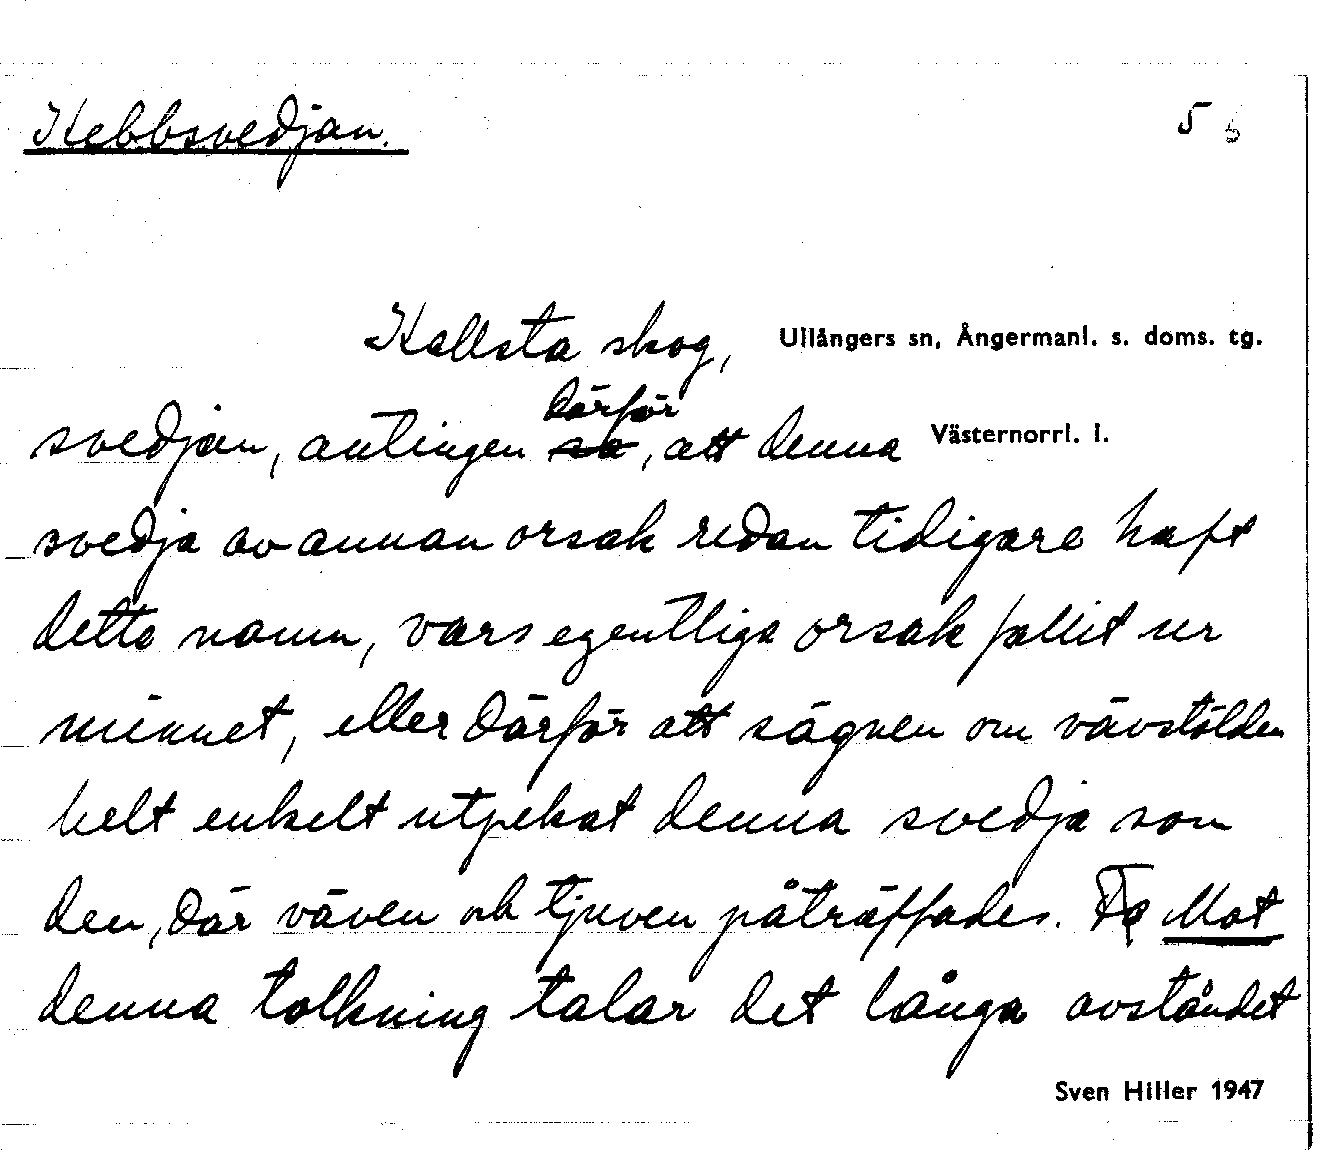 Kebbsvedjan. 5 5
Kallsta skog, Ullångers sn, Ångermanl. s. doms. tg.
därför
svedjan, antingen så, att denna Västernorrl. l.
svedja av annan orsak redan tidigare haft
detta namn, vars egentliga orsak fallit ur
minnet, eller därför att sägnen om vävstölden
helt enkelt utpekat denna svedja som
den, där väven och tjuven påträffades. Mot
denna tolkning talar det långa avståndet
Sven Hiller 1947